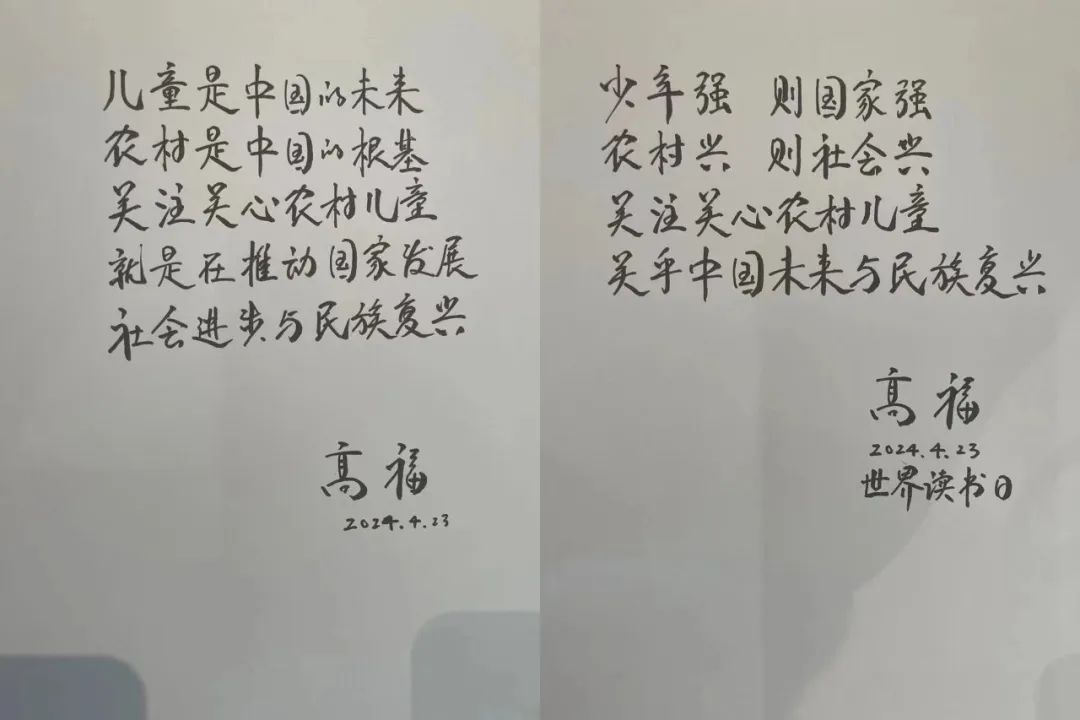 儿童是中国的未来
农村是中国的根基
关注关心农村儿童
就是在推动国家发展
社会进步与民族复兴
高福
2024.4.23
少年强 则国家强
农村兴 则社会兴
关注关心农村儿童
关乎中国未来与民族复兴
高福
2024.4.23
世界读书日